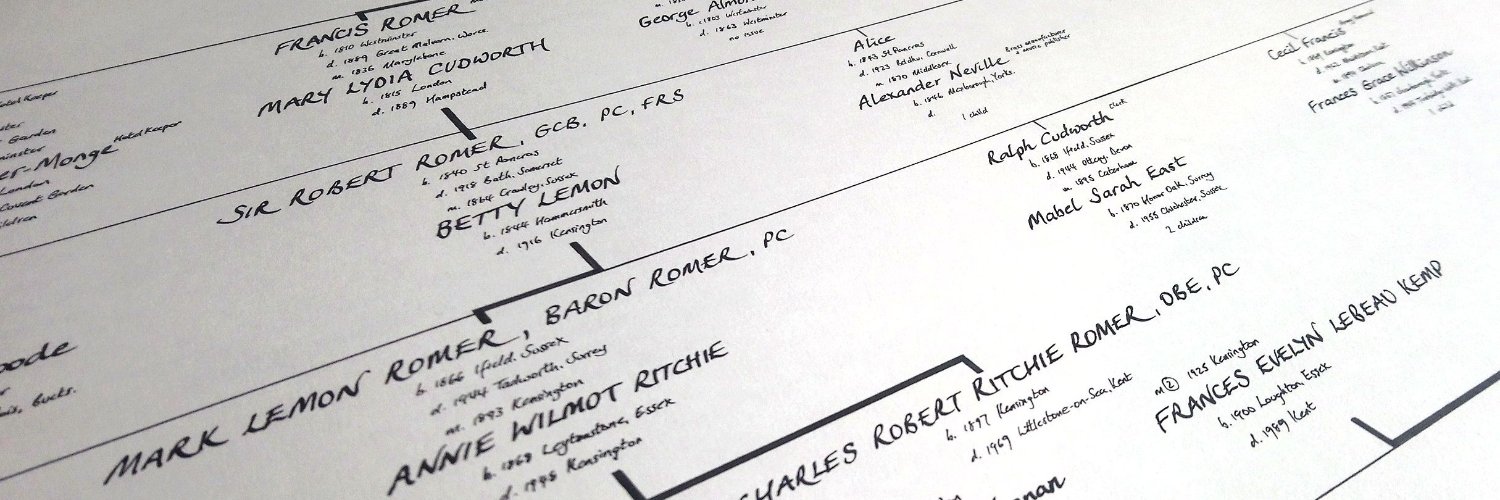 FRANCIS ROMER
b. 1810 Westminster
d. 1889 Great Malvern, Worcs.
m. 1836 Marylebone
MARY LYDIA CUDWORTH
b. 1815 London
d. 1889 Hampstead
George
d. 1863 Westminster
no issue
Alice
b. 1843 St Pancras
d. 1923 Cornwall
m. 1870 Middlesex
Alexander Neville
b. 1846 Mexborough, Yorks.
d.
1 child
Cecil Francis
Frances Grace Wilkinson
1 child
Hotel Keeper
Garden
er-Monge Hotel Keeper
London
Covent Garden
SIR ROBERT ROMER, GCB, PC, FRS
b. 1840 St Pancras
d. 1918 Bath, Somerset
m. 1864 Crawley, Sussex
BETTY LEMON
b. 1844 Hammersmith
d. 1916 Kensington
Ralph Cudworth Clerk
b. 1868 Ifield, Sussex
d. 1944 Ottery, Devon
m. 1895 Caterham
Mabel Sarah East
b. 1870 Honor Oak, Surrey
d. 1955 Chichester, Sussex
2 children
ode
Bucks.
MARK LEMON ROMER, BARON ROMER, PC
b. 1866 Ifield, Sussex
d. 1944 Tadworth, Surrey
m. 1893 Kensington
ANNIE WILMOT RITCHIE
b. 1868 Leytonstone, Essex
d. 1948 Kensington
CHARLES ROBERT RITCHIE ROMER, OBE, PC
b. 1897 Kensington
d. 1969 Littlestone-on-Sea, Kent
m② 1925 Kensington
FRANCES EVELYN LEBEAU KEMP
b. 1900 Loughton Essex
d. 1989 Kent
nan